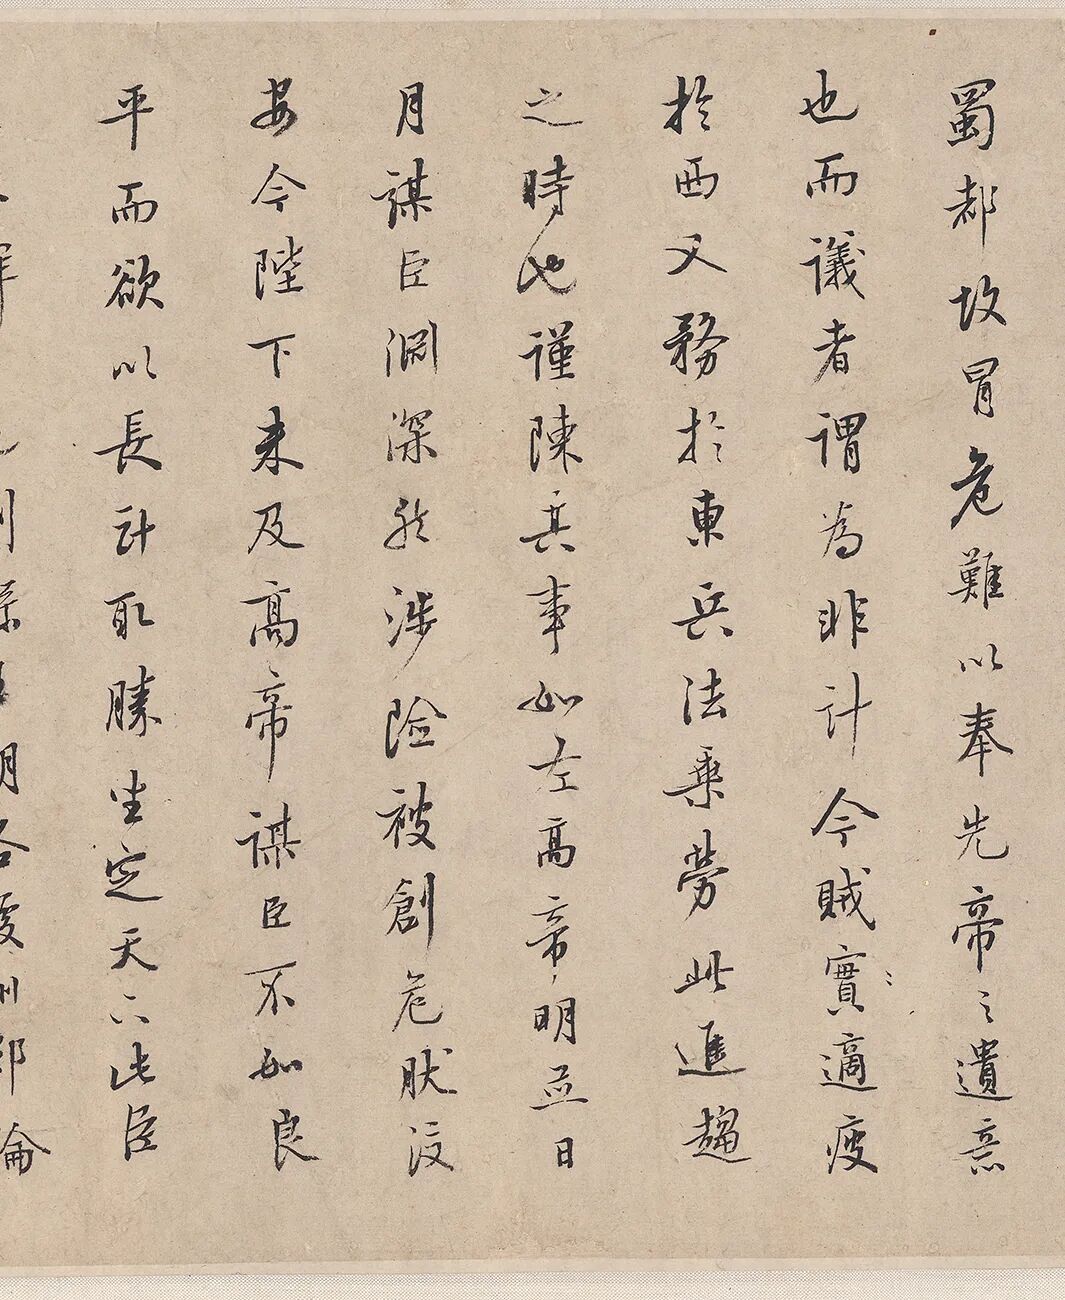 蜀都故冒危難以奉先帝之遺意
也而議者謂為非計今賊實適疲
於西又務於東兵法乘勞此進趨
之時也謹陳兵事如左高帝明並日
月謀臣淵深然涉險被創危然後
安今陛下未及高帝謀臣不如良
平而欲以長計取勝坐定天下此臣
朗各州郡論